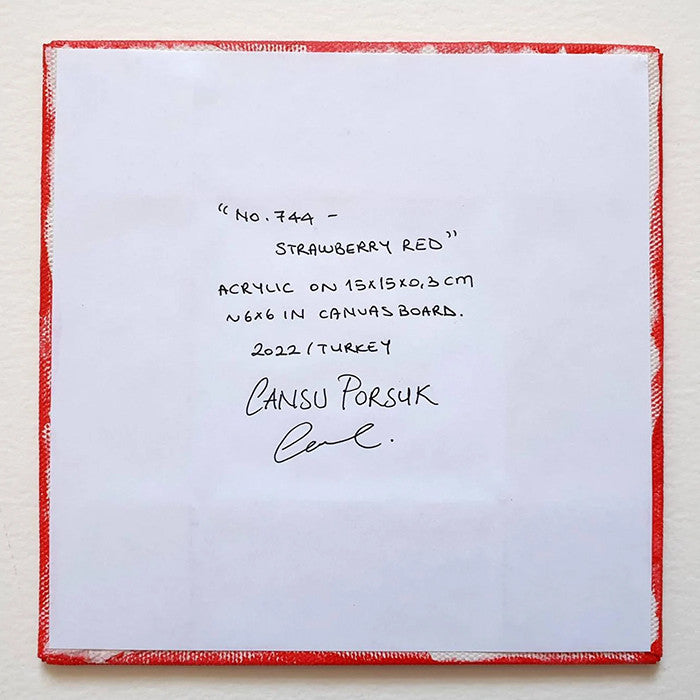 “NO. 744 –
STRAWBERRY RED”
ACRYLIC ON 15X15X0,3 CM
~6X6 IN CANVAS BOARD.
2022 / TURKEY
CANSU PORSUK